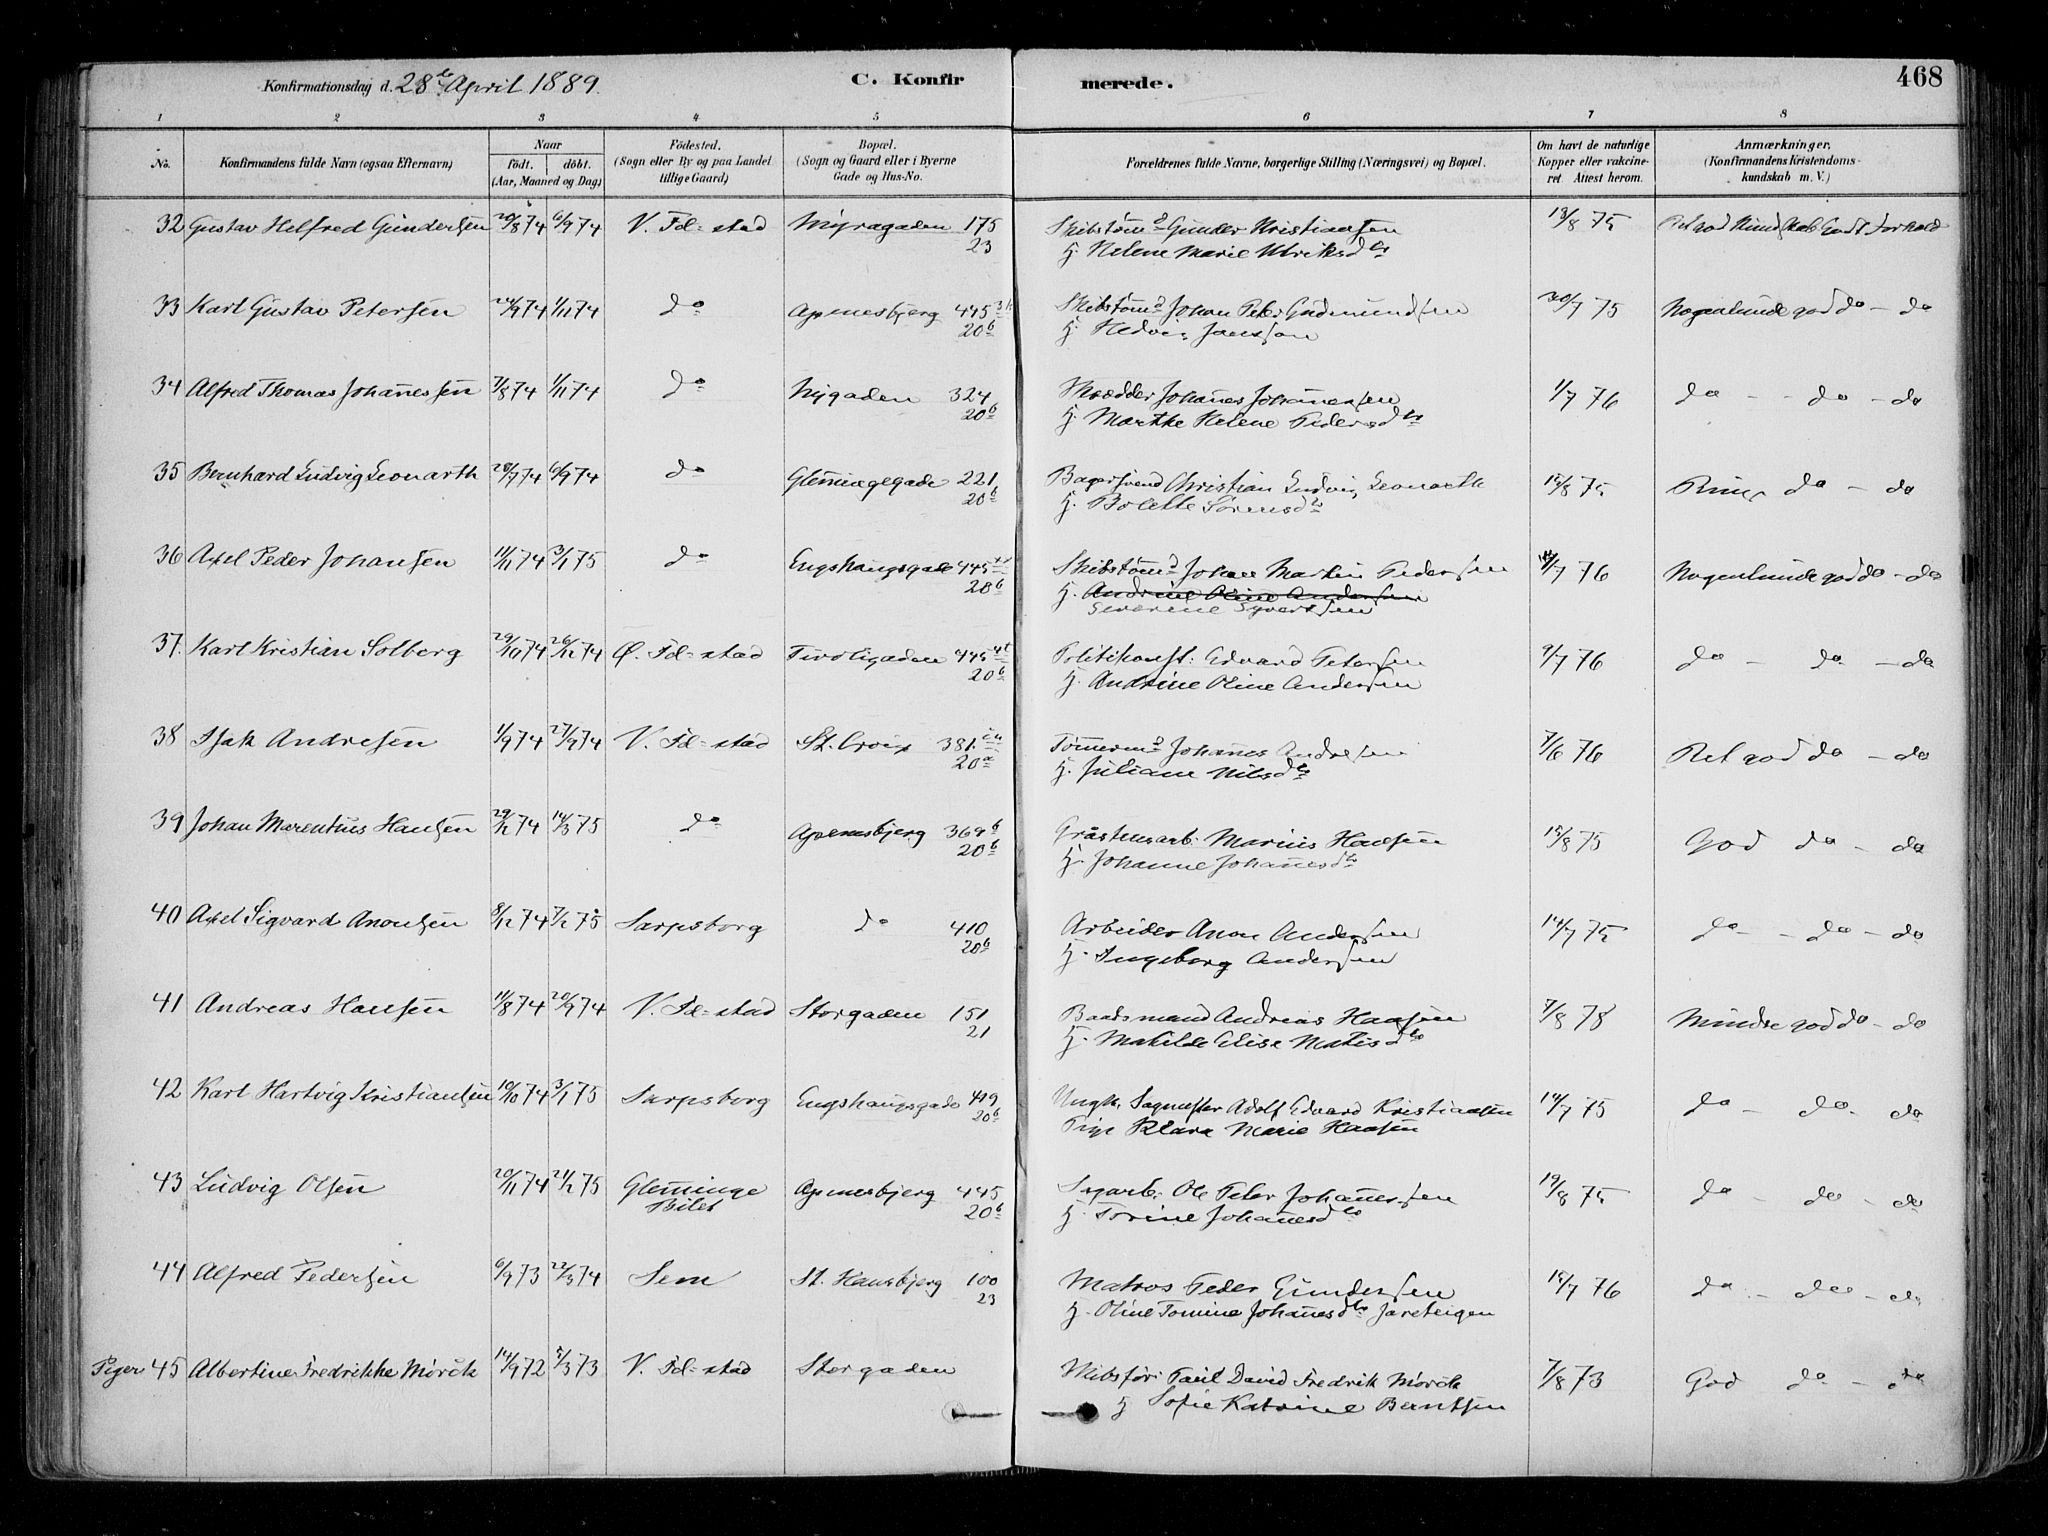 Konfirmationsdag d. 28de April 1889. C. Konfirmerede. 468
1 2 3 4 5 6 7 8
No. Konfirmandens fulde Navn (ogsaa Efternavn) Naar født. døbt. (Aar, Maaned og Dag) Fødested. (Sogn eller By og paa Landet tillige Gaard) Bopæl. (Sogn og Gaard eller i Byerne Gade og Hus-No. Forældrenes fulde Navne, borgerlige Stilling (Næringsvei) og Bopæl. Om havt de naturlige Kopper eller vakcineret. Attest herom. Anmærkninger. (Konfirmandens Kristendomskundskab m. V.)
32 Gustav Helfred Gundersen 20/8 74 6/9 74 V. Fd=stad Myragaden 175 Skibstømd Gunder Kristiansen 13/8 75 Ret god Kundskab Godt Forhold
23 H. Helene Marie Ulriksdtr
33 Karl Gustav Petersen 24/9 74 1/11 74 do Apenesbjerg 445 Skibstømd Johan Peter Gudmundsen 20/7 75 Nogenlunde god do - do
20b H. Hedvig Jansson
34 Alfred Thomas Johanessen 7/8 74 1/11 74 do Nygaden 324 Skrædder Johanes Johanessen 1/7 76 do - do - do
20b H. Marthe Helene Pedersdtr
35 Bernhard Ludvig Leonarth 28/7 74 6/9 74 do Glemmegade 221 Bagersvend Christian Ludvig Leonarth 15/8 75 do - do
20b H. Bolette Sørensdtr
36 Axel Peder Johansen 11/11 74 3/1 75 do Engshaugsgade 445 Skibstømd Johan Martin Pedersen 14/7 76 Nogenlunde god do - do
20b H. Andrine Oline Andersen
Severine Syvertsen
37. Karl Kristian Solberg 29/10 74 26/12 74 Ø. Fd=stad Tivoligaden 445 Politikonst: Edvard Petersen 9/7 76 do - do - do
20b H. Andrine Oline Andersen
38 Isak Andresen 1/9 74 27/9 74 V. Fd=stad St. Croix 381. Tømermd Johanes Andresen 7/6 76 Ret god do - do
20a H. Juliane Nilsdtr
39 Johan Marentius Hansen 29/12 74 14/3 75 do Apenesbjerg 369b Gråstensarb. Marius Hansen 15/8 75 God do - do
20b H. Johanne Johanesdtr
40 Axel Sigvard Anonsen 8/12 74 7/2 75 Sarpsborg do 410 Arbeider Anon Andersen 14/7 75 do - do - do
20b H. Ingeborg Andersen
41 Andreas Hansen 11/8 74 20/9 74 V. Fd=stad Storgaden 151 Baadsmand Andreas Hansen 7/8 78 Mindre god do - do
21 H. Mathilde Elise Matisdtr
42 Karl Hartvig Kristiansen 10/10 74 3/1 75 Sarpsborg Engshaugsgade 419 Ungk. Sagmester Adolf Edvard Kristiansen 14/7 75 do - do - do
20b Pige Klara Marie Hansen
43 Ludvig Olsen 20/11 74 21/2 75 Glemminge Apenesbjerg 445 Sagarb. Ole Peter Johanessen 19/8 75 do - do - do
20b H. Torine Johanesdtr
44 Alfred Pedersen 6/9 73 22/3 74 Sem St. Hansbjerg 100 Matros Peder Gundersen 15/7 76 do - do - do
23 H. Oline Tomine Johanesdtr Jareteigen
Piger 45 Albertine Fredrikke Mørck 14/9 72 5/3 73 V. Fd=stad Storgaden Skibsfør: Paul David Fredrik Mørck 7/8 73 God do - do
H Sofie Katrine Berntsen